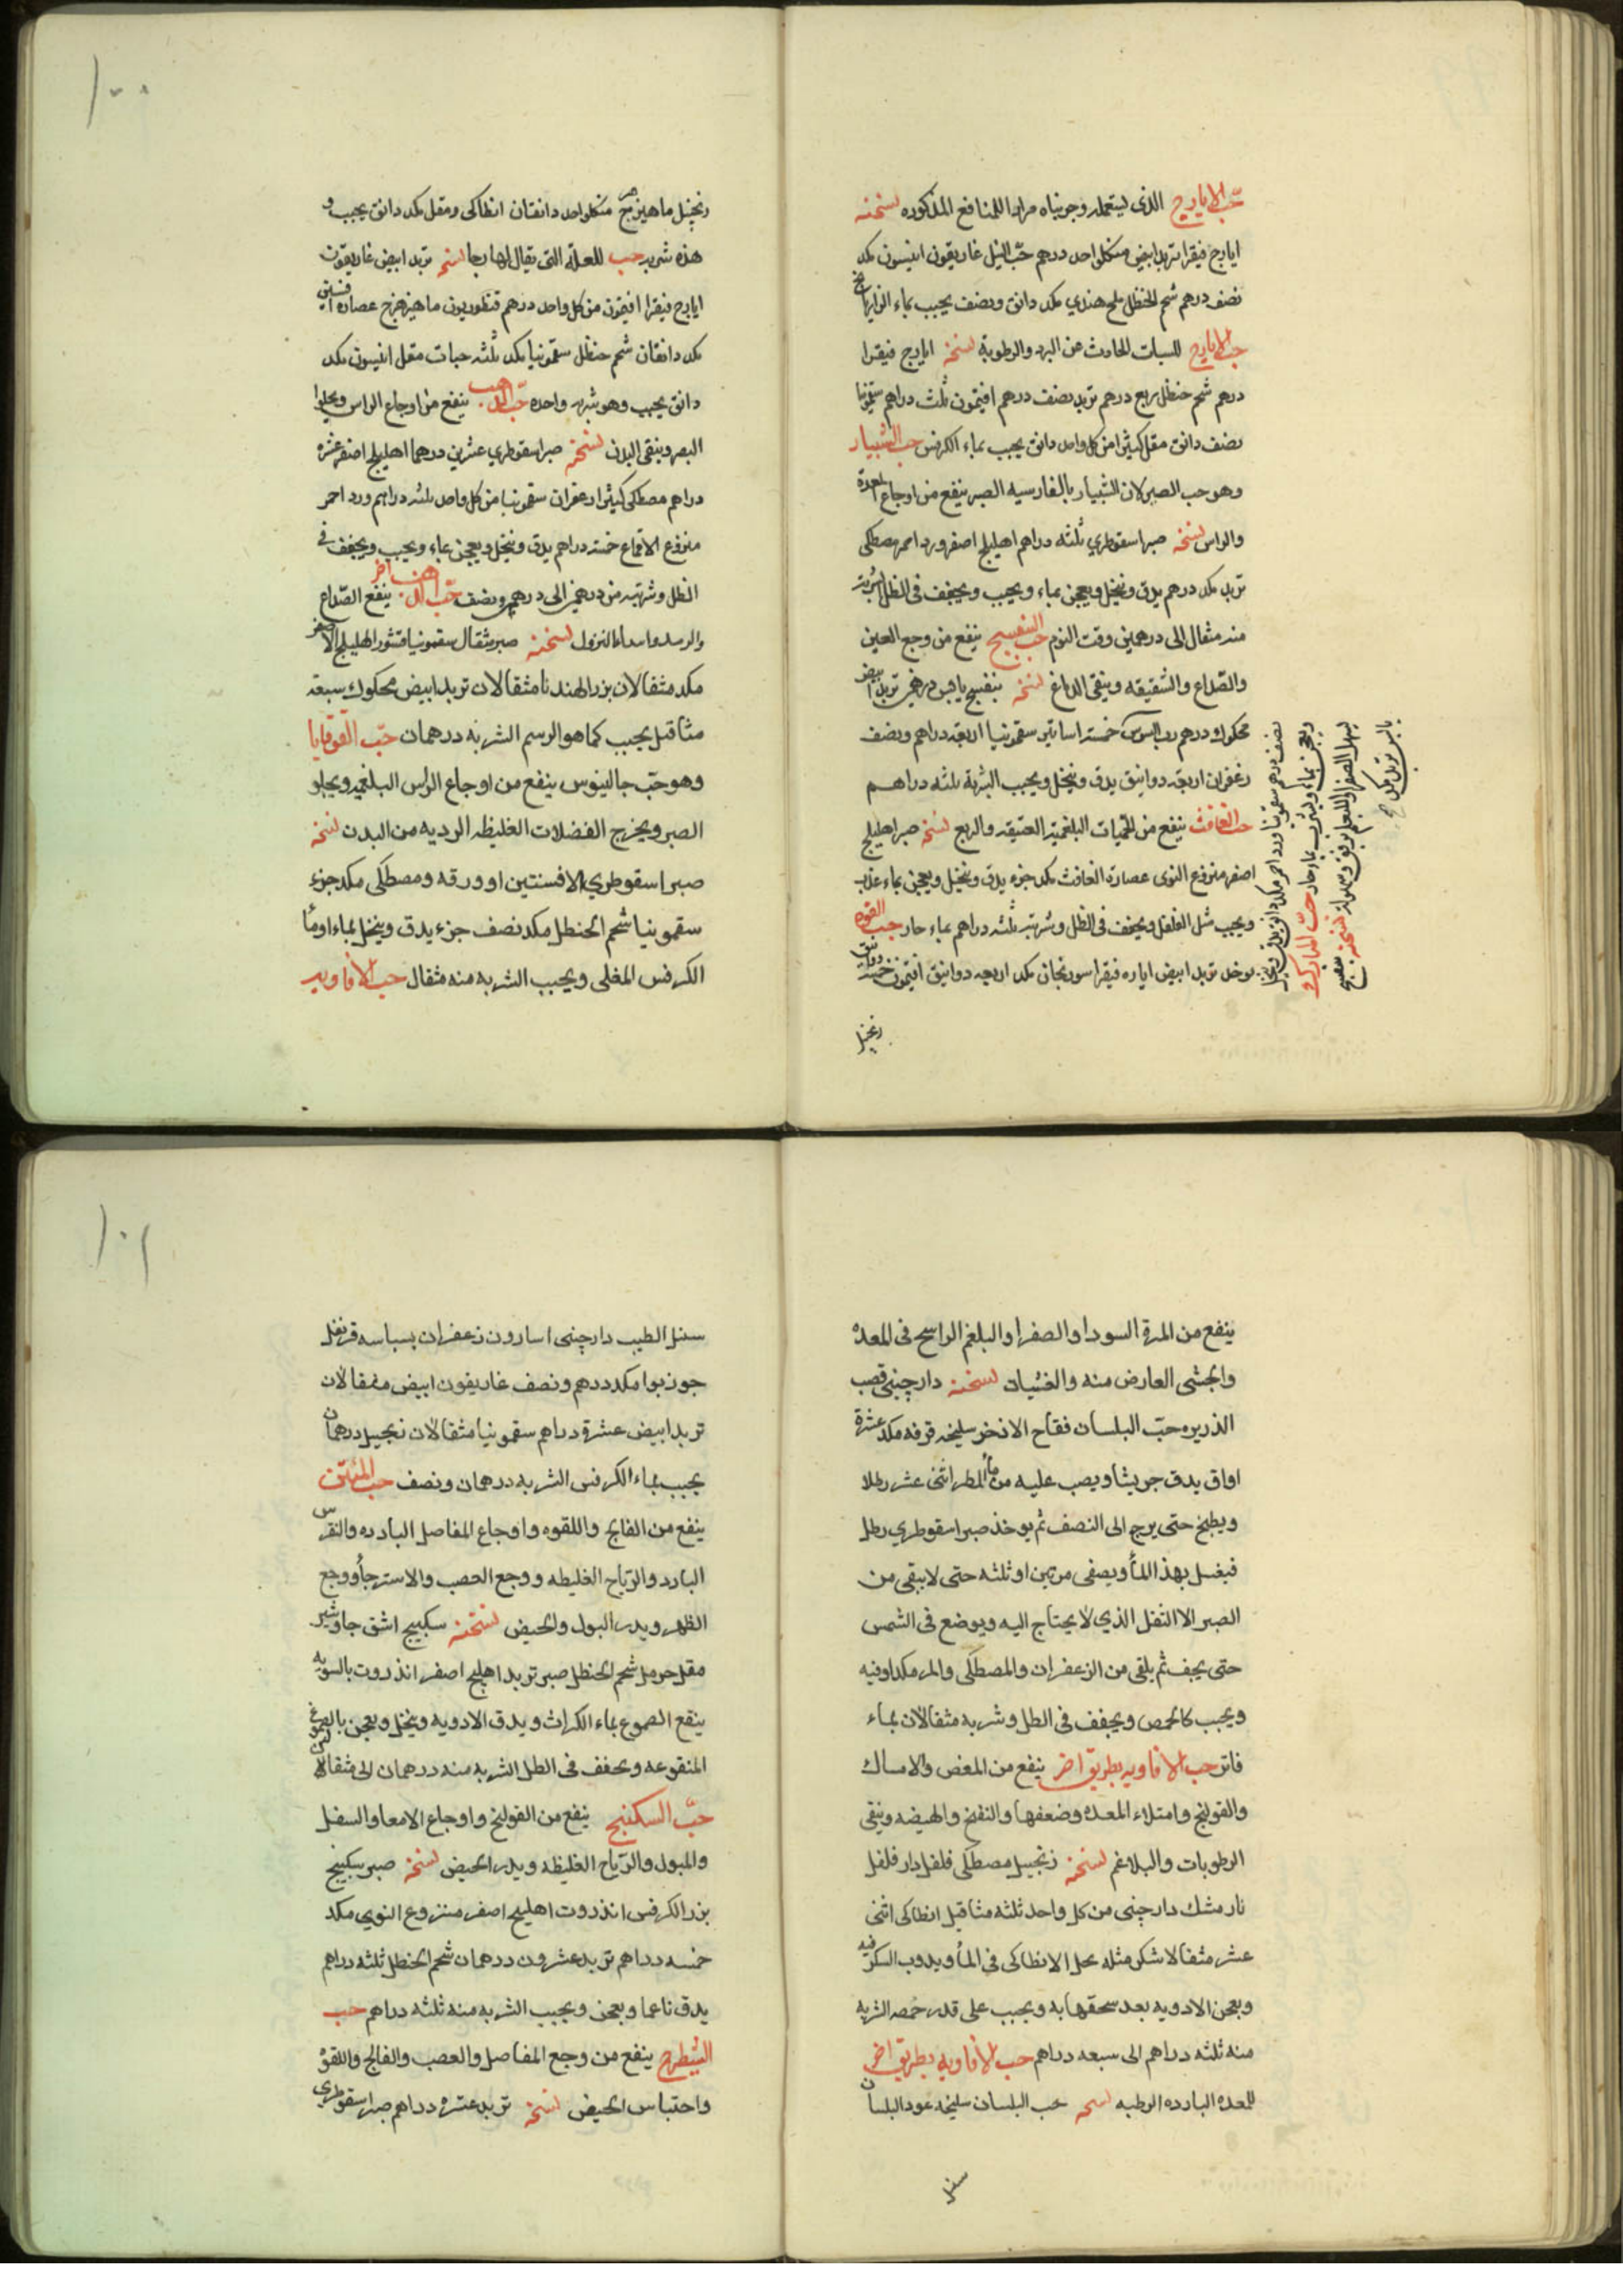 حب الايارج الذي يستعمله وجربناه مرارا للمنافع المذكوره نسخته
ايارج فيقرا تربد ابيض من كل واحد درهم حب النيل غاريقون انيسون مكد
نصف درهم شحم الحنظل ملح هندي مكد دانق ونصف يحبب بماء الرازيانج
حب الايارج للسبات الحادث عن البرد والرطوبة نسخته ايارج فيقرا
درهم شحم حنظل ربع درهم تربد نصف درهم افتيمون ثلث دراهم سقمونيا
نصف دانق مقل كثيرا من كل واحد دانق يحبب بماء الكرفس حب الشبيار
وهو حب الصبر لان الشبيار بالفارسيه الصبر ينفع من اوجاع المعدة
والراس نسخته صبر اسقوطري ثلثه دراهم اهليلج اصفر ورد احمر مصطكى
تربد مكد درهم يدق وينخل ويعجن بماء ويحبب ويجفف في الظل الشربة
منه مثقال الى درهمين وقت النوم حب البنفسج ينفع من وجع العين
والصداع والشقيقه وينقي الدماغ نسخته بنفسج يابس درهمين تربد ابيض
محكوك درهم رب السوس خمسة اساتير سقمونيا اربعه دراهم ونصف
زعفران اربعه دوانيق يدق وينخل ويحبب الشربة ثلثه دراهم
حب الغافث ينفع من الحميات البلغمية العتيقه والربع نسخته صبر اهليلج
اصفر منزوع النوى عصارة الغافث مكد جزء يدق وينخل ويعجن بماء عذب
ويحبب مثل الفلفل ويجفف في الظل وشربته ثلثه دراهم بماء حار حب القوه
يوخذ تربد ابيض اياره فيقرا سورنجان مكد اربعه دوانيق افتيمون خمسة دوانيق
زنجبيل
نصف درهم سقمونيا ورد احمر مكد دانق يدق وينخل
ويعجن بماء ويشرب بماء حار حب المبارك و
يسهل الصفرا والبلغم برفق وسهولة نسخته بنفسج
يابس تربد مكد
١٠٠
زنجبيل ماهيزهرج من كل واحد دانقان انطاكي ومقل مكد دانق يحبب و
هذه شربه حب للعلة التي يقال لها رجا نسخته تربد ابيض غاريقون
ايارج فيقرا افتيمون من كل واحد درهم قنطوريون ماهيزهرج عصاره افسنتين
مكد دانقان شحم حنظل سقمونيا مكد ثلثه حبات مقل انيسون مكد
دانق يحبب وهو شربه واحده حب الذهب ينفع من اوجاع الراس ويجلوا
البصر وينقي البدن نسخته صبر اسقوطري عشرين درهما اهليلج اصفر عشره
دراهم مصطكى كثيرا زعفران سقمونيا من كل واحد ثلثه دراهم ورد احمر
منزوع الاقماع خمسه دراهم يدق وينخل ويعجن بماء ويحبب ويجفف في
الظل وشربته من درهمين الى درهمين ونصف حب الذهب اخر ينفع الصداع
والرمد وابتداء النزول نسخته صبر مثقال سقمونيا قشور الهليلج الاصفر
مكد مثقالان بزر الهندبا مثقالان تربد ابيض محكوك سبعة
مثاقيل يحبب كما هو الرسم الشربه درهمان حب القوقايا
وهو حب جالينوس ينفع من اوجاع الراس البلغميه ويجلو
الصبر ويخرج الفضلات الغليظه الرديه من البدن نسخته
صبر اسقوطري الافسنتين او ورقه ومصطكى مكد جزء
سقمونيا شحم الحنظل مكد نصف جزء يدق وينخل بماء او ماء
الكرفس المغلى ويحبب الشربه منه مثقال حب الافاويه
ينفع من المرة السودا والصفرا والبلغم الراسخ في المعده
والجشى العارض منه والغثيان نسخته دارچيني قصب
الذريره حب البلسان فقاح الاذخر سليخه قرفه مكد عشرة
اواق يدق جريشا ويصب عليه من ماء المطر اثنى عشر رطلا
ويطبخ حتى يرجع الى النصف ثم يوخذ صبر اسقوطري رطل
فيغسل بهذا الماء ويصفى مرتين او ثلثه حتى لا يبقى من
الصبر الا الثفل الذي لا يحتاج اليه ويوضع في الشمس
حتى يجف ثم يلقى من الزعفران والمصطكى والمر مكد اوقيه
ويحبب كالحمص ويجفف في الظل وشربه مثقالان بماء
فاتر حب الافاويه بطريق اخر ينفع من المغص والامساك
والقولنج وامتلاء المعده وضعفها والنفخ والهيضه وينقى
الرطوبات والبلاغم نسخته زنجبيل مصطكى فلفل دار فلفل
نار مشك دارچيني من كل واحد ثلثه مثاقيل انطاكى اثنى
عشر مثقالا شكر مثله يحل الانطاكى في الماء ويذوب السكر فيه
ويعجن الادويه بعد سحقها به ويحبب على قدر حمصه الشربه
منه ثلثه دراهم الى سبعه دراهم حب الافاويه بطريق اخر
للمعده البارده الرطبه نسخته حب البلسان سليخه عود البلسان
سنبل
١٠١
سنبل الطيب دارچيني اسارون زعفران بسباسه قرنفل
جوز بوا مكد درهم ونصف غاريقون ابيض مثقالان
تربد ابيض عشرة دراهم سقمونيا مثقالان زنجبيل درهمان
يحبب بماء الكرفس الشربه درهمان ونصف حب المنتن
ينفع من الفالج واللقوه واوجاع المفاصل البارده والنقرس
البارد والرياح الغليظه ووجع العصب والاسترخاء ووجع
الظهر ويدر البول والحيض نسخته سكبينج اشق جاوشير
مقل حرمل شحم الحنظل صبر تربد اهليلج اصفر انذروت بالسويه
ينقع الصموغ بماء الكراث ويدق الادويه وينخل ويعجن بالصموغ
المنقوعه ويجفف في الظل الشربه منه درهمان الى مثقالان
حب السكبينج ينفع من القولنج واوجاع الامعا والسفل
والمبول والرياح الغليظه ويدر الحيض نسخته صبر سكبينج
بزر الكرفس انذروت اهليلج اصفر منزوع النوى مكد
خمسه دراهم تربد عشرون درهمان شحم الحنظل ثلثه دراهم
يدق ناعما ويعجن ويحبب الشربه منه ثلثه دراهم حب
الشيطرج ينفع من وجع المفاصل والعصب والفالج واللقوة
واحتباس الحيض نسخته تربد عشره دراهم صبر اسقوطري